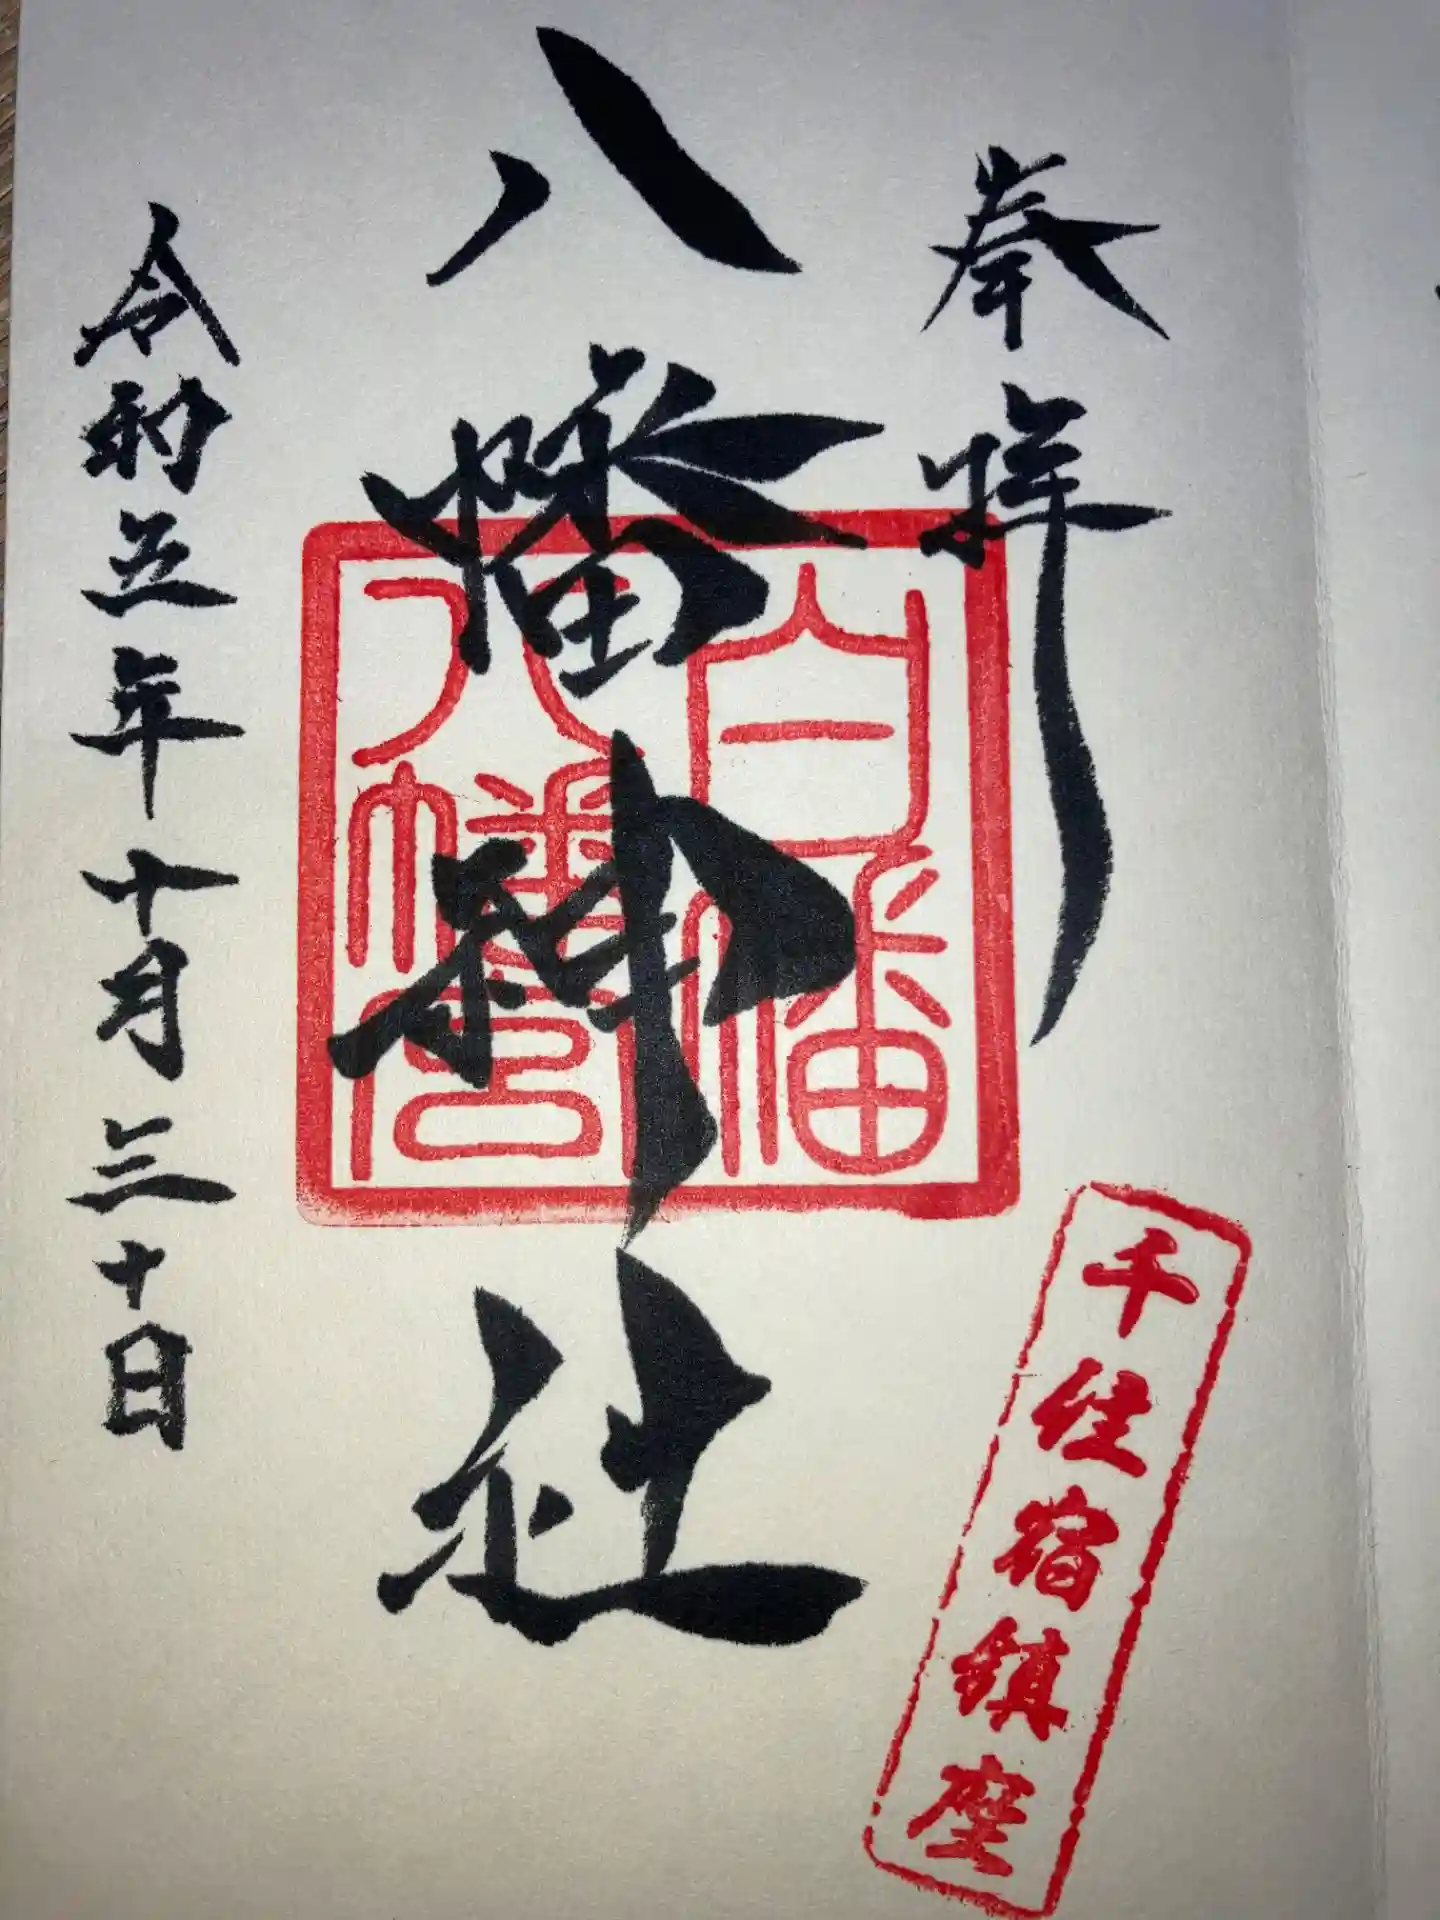 奉拝
千住宿鎮座
八幡神社
白幡
八幡宮
令和五年十月三十日